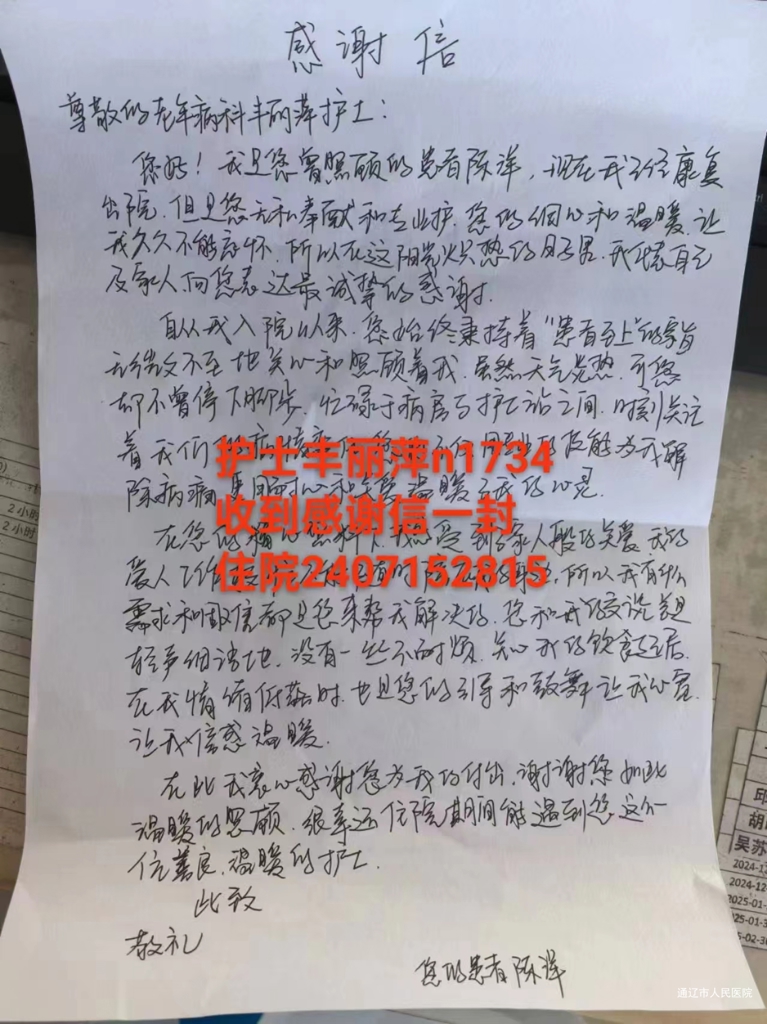 感谢信
尊敬的老年病科丰丽萍护士：
您好！我是您曾照顾的患者陈洋，现在我已经康复
出院，但是您无私奉献和专业护，您的细心和温暖，让
我久久不能忘怀，所以在这阳光火热的日子里，我代表自己
及家人，向您表达最诚挚的感谢．
自从我入院以来，您始终秉持着“患者至上”的宗旨
无微不至地关心和照顾着我，虽然天气炎热，可您
却不曾停下脚步，忙碌于病房与护士站之间，时刻关注
着我们的病情
除病痛
护士丰丽萍n1734
收到感谢信一封
住院2407152815
在您的 感受到家人般的关爱，我的
爱人工作 所以我有什么
需求和 都是您来帮我解决的，您和我的交谈总是
轻声细语地，没有一丝不耐烦，关心我的饮食起居，
在我情绪低落时，也是您的引导和鼓舞让我心安，
让我倍感温暖．
在此我衷心感谢您为我的付出，谢谢您如此
温暖的照顾，很幸运住院期间能遇到您这么一
位善良、温暖的护士．
此致
敬礼
您的患者陈洋
2小时
2小时
邱
胡
吴苏
2024-12
2025-01-
025-01-3
5-02-30
通辽市人民医院